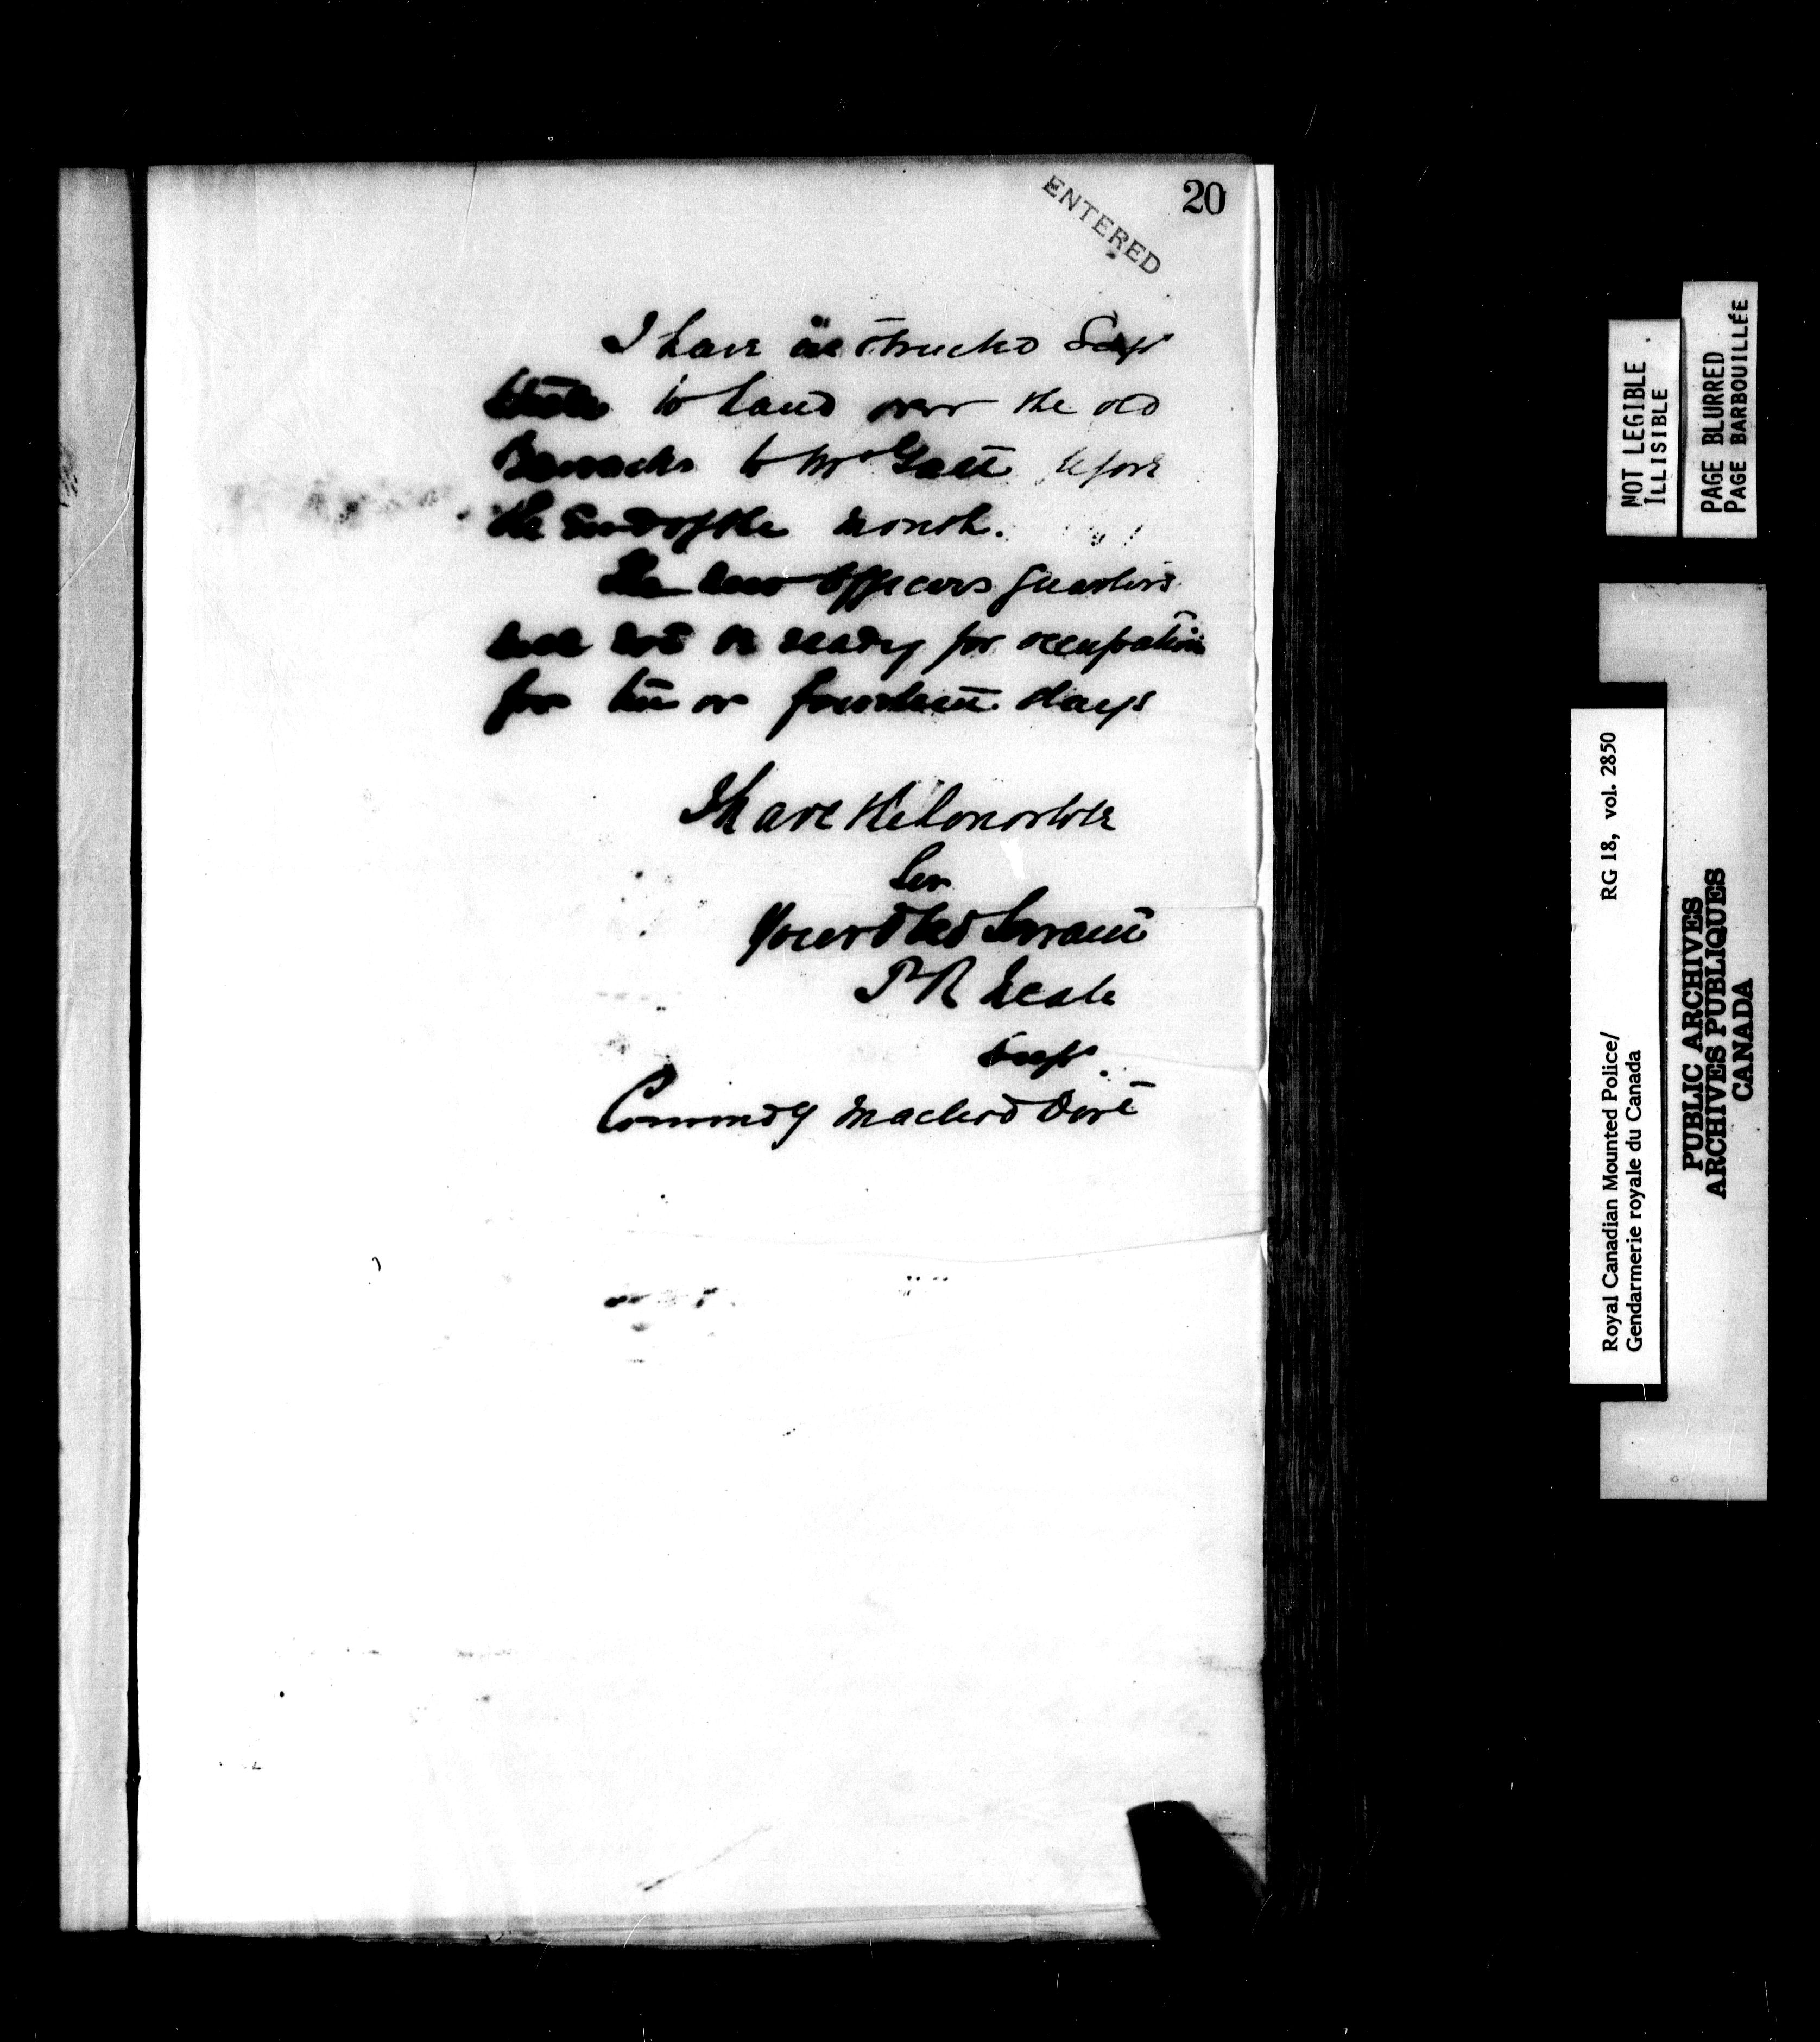 20
ENTERED
I have instructed Supt
to hand over the old
Barracks to Mr Galt before
the End of the month.
The new Officers Quarters
will not be ready for occupation
for ten or fourteen days
I have the honor to be
Sir
Your Obed Servant
P R Neale
Supt.
Commdg Macleod Dist
NOT LEGIBLE
ILLISIBLE
PAGE BLURRED
PAGE BARBOUILLÉE
Royal Canadian Mounted Police/ RG 18, vol. 2850
Gendarmerie royale du Canada
PUBLIC ARCHIVES
ARCHIVES PUBLIQUES
CANADA